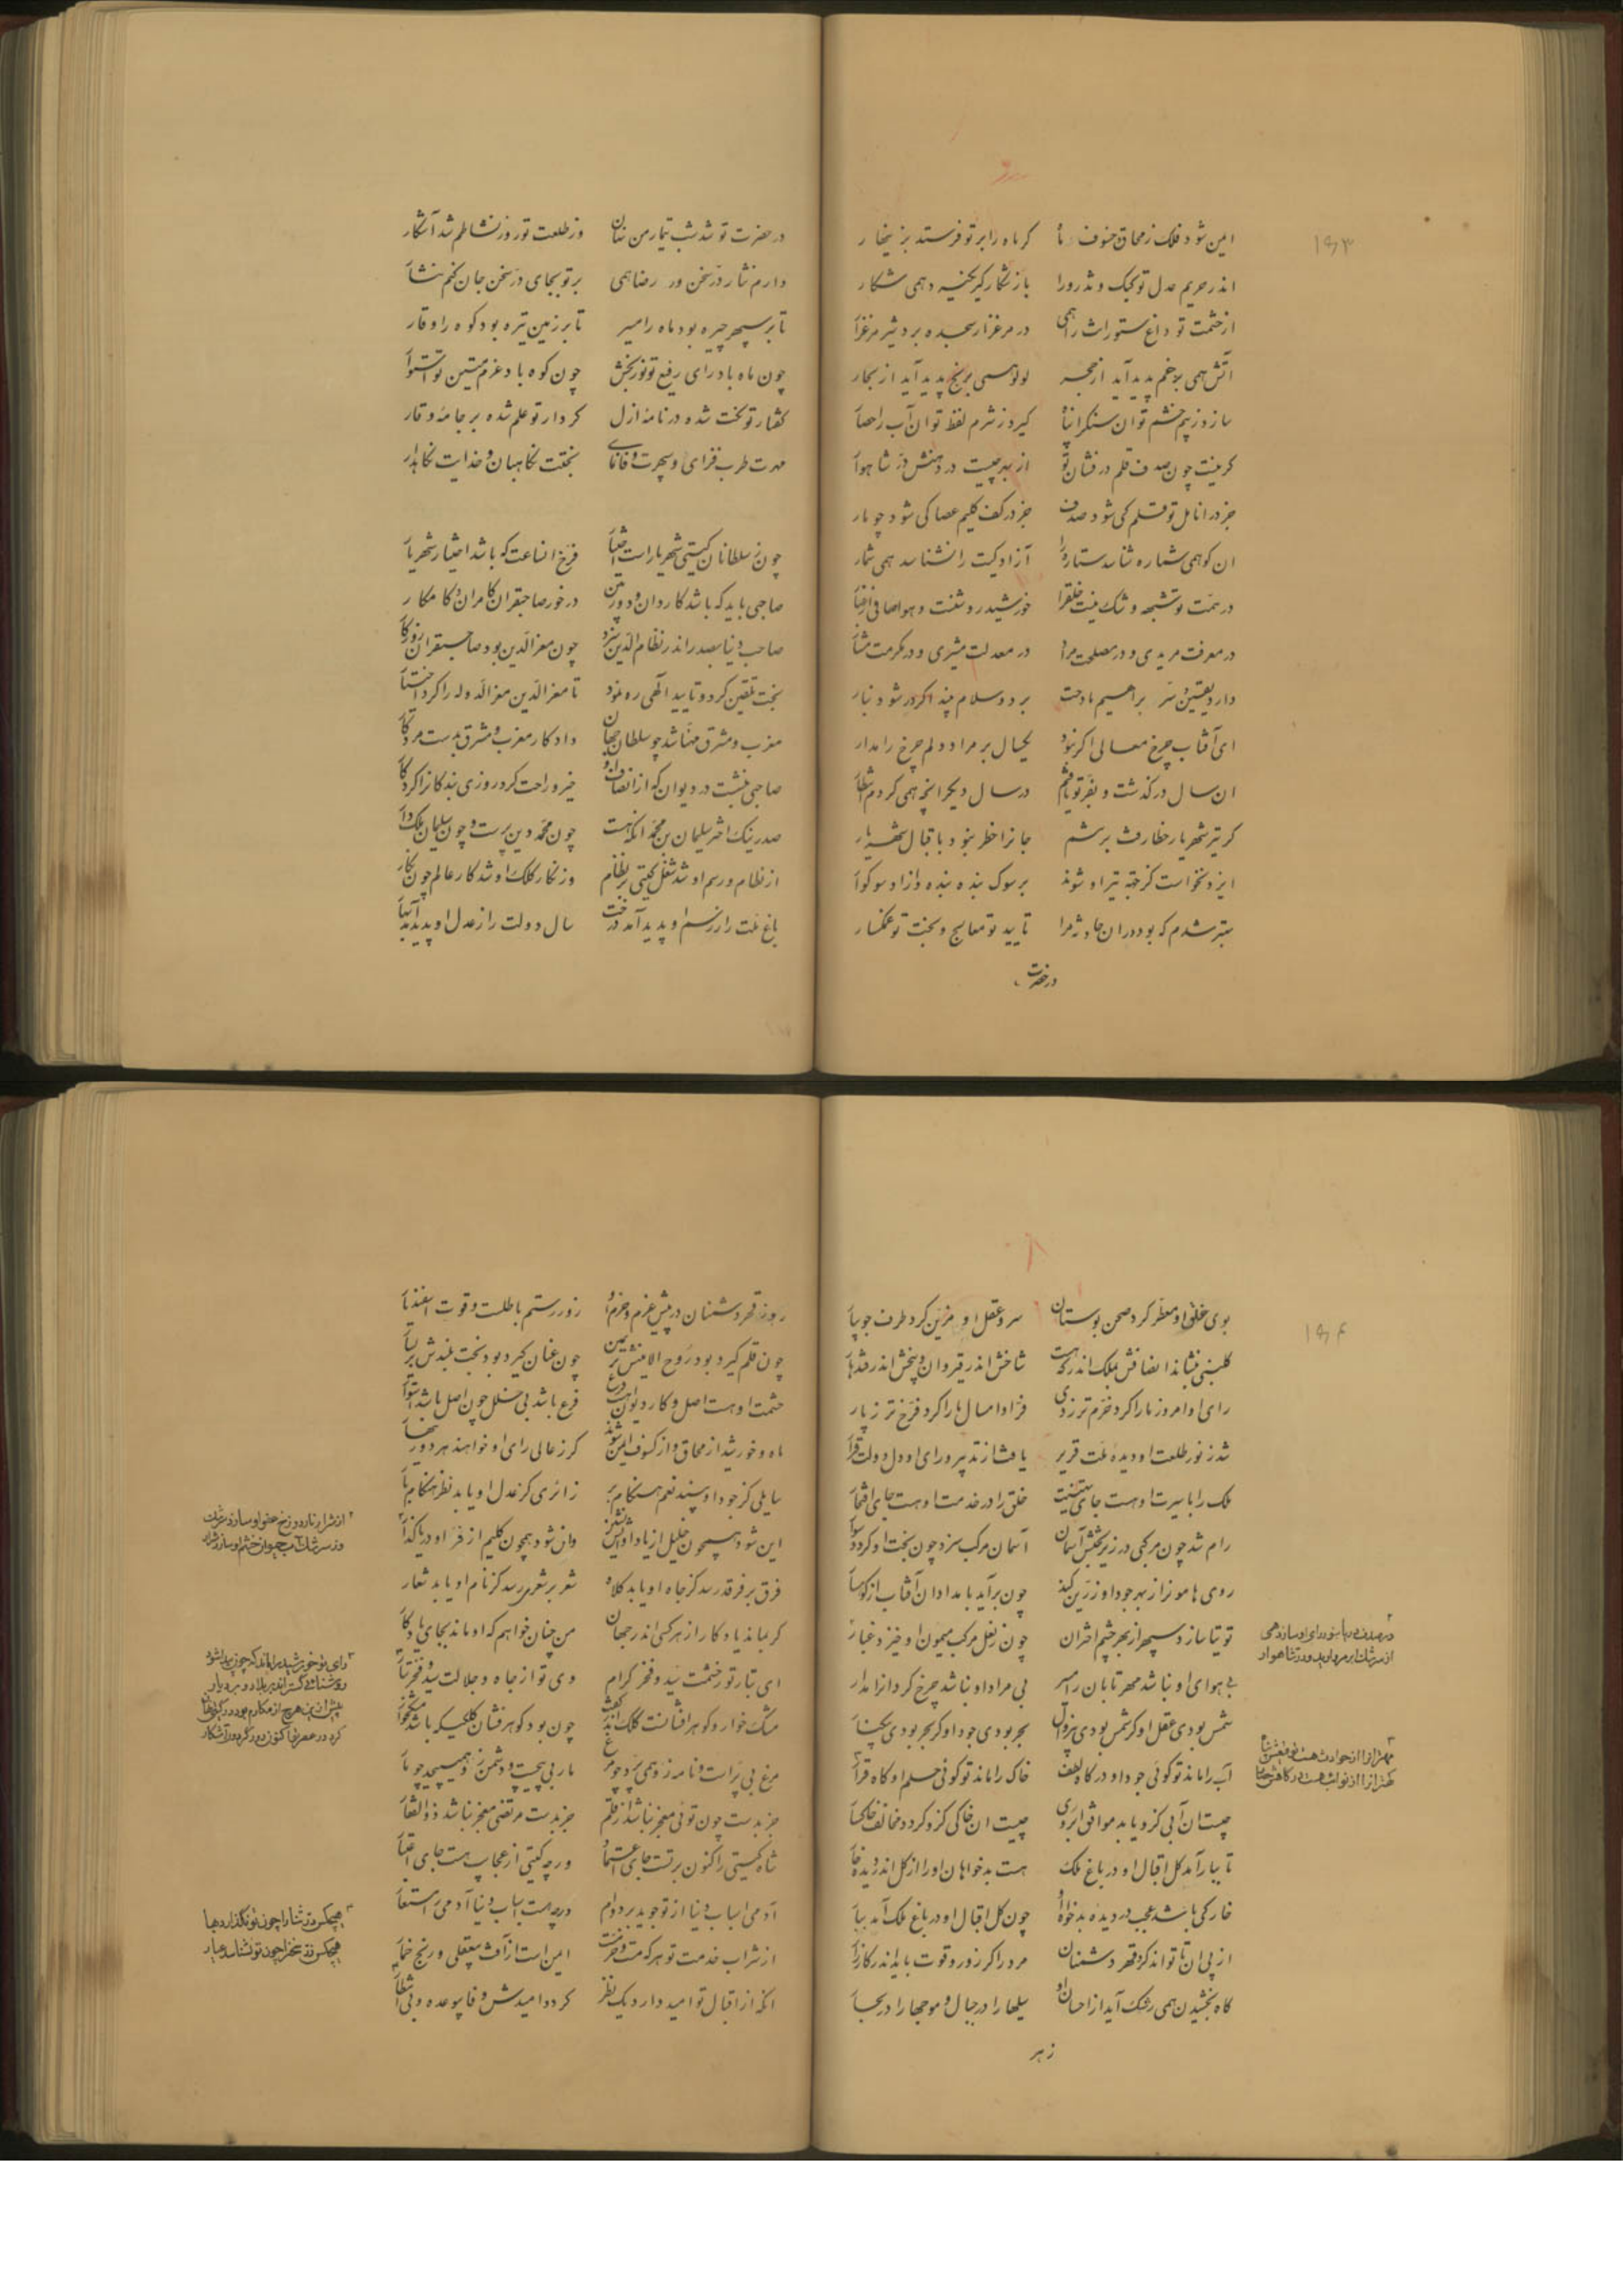 ۱۶۳
ایمن شود فلک ز محاق و خسوف ماه
گر ماه را بر تو فرستد بزینهار
اندر حریم عدل تو کبک و تذرو را
باز شکار گیر نخسبد همی شکار
از حشمت تو داغ ستورانت را همی
در مرغزار سجده برد شیر مرغزار
آتش همی بلاخم پدید آید از حجر
لولو همی برنج پدید آید از بحار
سازد ز بیم خشم تو آن سنگ را پناه
گیرد ز شرم لفظ تو آن آب را حصار
گر نیست چون صدف قلم درفشان تو
از بهر چیست در دهنش در شاهوار
جز در انامل تو قلم کی شود صدف
جز در کف کلیم عصا کی شود چو مار
آن کو همی شماره شناسد ستاره را
آزادگیت را نشناسد همی شمار
در همت تو شبهه و شک نیست خلق را
خورشید روشنست و هوا صافی از غبار
در معرفت مریدی و در مصلحت مراد
در معدلت مشیری و در مکرمت مشار
دارد یقین و سر براهیم مادحت
برد و سلام بیند اگر در شود بنار
ای آفتاب چرخ معالی اگر نبود
یکسال بر مراد دلم چرخ را مدار
آن سال در گذشت و بفر تو یافتم
در سال دیگر آنچه همی کردم انتظار
گر تیر شهریار خطا رفت بر تنم
جانرا خطر نبود باقبال شهریار
ایزد نخواست کز خبر تیر او شوند
بر سوک بنده بنده و آزاد سوکوار
بهتر شدم که بود در آن حادثه مرا
تایید تو معالج و بخت تو غمگسار
در حضرت
در حضرت تو شد شب تیمار من نهان
وز طلعت تو روز نشاطم شد آشکار
دارم نثار در سخن ور رضا دهی
بر تو بجای در سخن جان کنم نثار
تا بر سپهر چیره بود ماه را مسیر
تا بر زمین تیره بود کوه را وقار
چون ماه باد رای رفیع تو نور بخش
چون کوه باد عزم متین تو استوار
گفتار تو نکت شده در نامه ازل
کردار تو علم شده بر جامه وقار
مهرت طرب فزای و سپهرت وفانمای
بختت نگاهبان و خدایت نگاهدار
چون ز سلطانان گیتی شهریار است اختیار
فرخ آنساعت که باشد اختیار شهریار
صاحبی باید که باشد کاردان و دوربین
در خور صاحبقران کامران و کامکار
صاحب دنیا بصدر اندر نظام الدین سزد
چون معز الدین بود صاحبقران روزگار
بخت تلقین کرد و تایید الهی ره نمود
تا معز الدین معز الدوله را کرد اختیار
مغرب و مشرق مهیا شد چو سلطان جهان
داد کار مغرب و مشرق بدست مرد کار
صاحبی بنشست در دیوان که از انصاف او
خیر و راحت کرد روزی بندگانرا کردگار
صدر نیک اختر سلیمان بن محمد آنکه هست
چون محمد دین پرست و چون سلیمان ملک دار
از نظام و رسم او شد شغل گیتی بر نظام
وز نگار کلک او شد کار عالم چون نگار
باغ ملت را ز رسم او پدید آمد درخت
سال دولت را ز عدل او پدید آمد بهار
۱۶۴
بوی خلق او معطر کرد صحن بوستان
سرو عقل او مزین کرد طرف جویبار
گلبنی بنشاند انصافش بملک اندر که هست
شاخش اندر قیروان و بیخش اندر قندهار
رای او امروز ما را کرد خرم تر ز دی
فر او امسال ما را کرد فرخ تر ز پار
شد ز نور طلعت او دیده ملت قریر
یافت از تدبیر و رای او دل دولت قرار
ملک را با سیرت او هست جای تهنیت
خلق را در خدمت او هست جای افتخار
رام شد چون مرکبی در زیر بختش آسمان
آسمان مرکب سزد چون بخت او گردد سوار
روی هامون را ز بهر جود او زرین کند
چون برآید بامدادان آفتاب از کوهسار
توتیا سازد سپهر از بهر چشم اختران
چون ز نعل مرکب میمون او خیزد غبار
بی هوای او نباشد مهر تابان را مسیر
بی مراد او نباشد چرخ گردانرا مدار
شمس بودی عقل او گر شمس بودی بی زوال
بحر بودی جود او گر بحر بودی بی کنار
آب را ماند تو گوئی جود او در گاه لطف
خاک را ماند تو گوئی حلم او گاه قرار
چیست آن آبی کزو یابد موافق آبروی
چیست آن خاکی کزو گردد مخالف خاکسار
تا ببار آمد گل اقبال او در باغ ملک
هست بدخواهان او را از گل اندر دیده خار
خار کی باشد عجب در دیده بدخواه او
چون گل اقبال او در باغ ملک آمد ببار
از پی آن تا تواند کرد قهر دشمنان
مرد را گر زور و قوت باید اندر کارزار
گاه بخشیدن همی رشک آید از احسان او
سیلها را در جبال و موجها را در بحار
در صدف دریا بنور رای او سازد همی
از سرشک ابر مروارید و در شاهوار
مهتران را از حوادث هست توقیعش پناه
کهتران را از نوایب هست درگاهش حصار
زهر
روز قهر دشمنان در پیش عزم و حزم او
زور رستم باطلست و قوت اسفندیار
چون قلم گیرد بود روح الامینش بر یمین
چون عنان گیرد بود بخت بلندش بر یسار
حشمت او هست اصل و کار دیوان هست فرع
فرع باشد بی خلل چون اصل باشد استوار
ماه و خورشید از محاق و از کسوف ایمن شوند
گر ز عالی رای او خواهند هر دو زینهار
سایلی کز جود او بیند نعم هنگام بر
زائری کز عدل او یابد نظر هنگام بار
این شود همچون خلیل از یاد او آتش نشین
وان شود همچون کلیم از فر او دریا گذار
فرق بر فرقد رسد کز جاه او یابد کلاه
شعر بر شعری رسد کز نام او یابد شعار
گر بماند یادگار از هر کسی اندر جهان
من چنان خواهم که او ماند بجای یادگار
ای تبار تو ز حشمت سید و فخر کرام
وی تو از جاه و جلالت سید و فخر تبار
مشک خوار و گوهر افشانست کلک اندر کفت
چون بود گوهر فشان کلکی که باشد مشکخوار
مرغ بی پر است و نامه زو همی پرد چو مرغ
مار بی پیچست و دشمن زو همی پیچد چو مار
جز بدست چون توئی معجز نباشد از قلم
جز بدست مرتضی معجز نباشد ذوالفقار
شاه گیتی را کنون بر تست جای اعتماد
ورچه گیتی از عجایب هست جای اعتبار
آدمی اسباب دنیا از تو جوید بر دوام
ورچه هست اسباب دنیا آدمی را مستعار
از شراب خدمت تو هر که مست و خرمست
ایمن است از آفت بی عقلی و رنج خمار
آنکه از اقبال تو امید دارد یک نظر
گردد امیدش وفا بی وعده و بی انتظار
از شرار نار دوزخ عفو او سازد شراب
وز سرشک آب حیوان خشم او سازد شرار
رای تو خورشید را ماند که چون پیدا شود
روشنائی گستراند بر بلاد و بر دیار
پیش ازین هرچ از مکارم بود در گیتی نهان
کرد در عصر تو اکنون دور گردون آشکار
هیچکس در ثنا را چون تو نگذارد بها
هیچکس زر سخن را چون تو نشناسد عیار